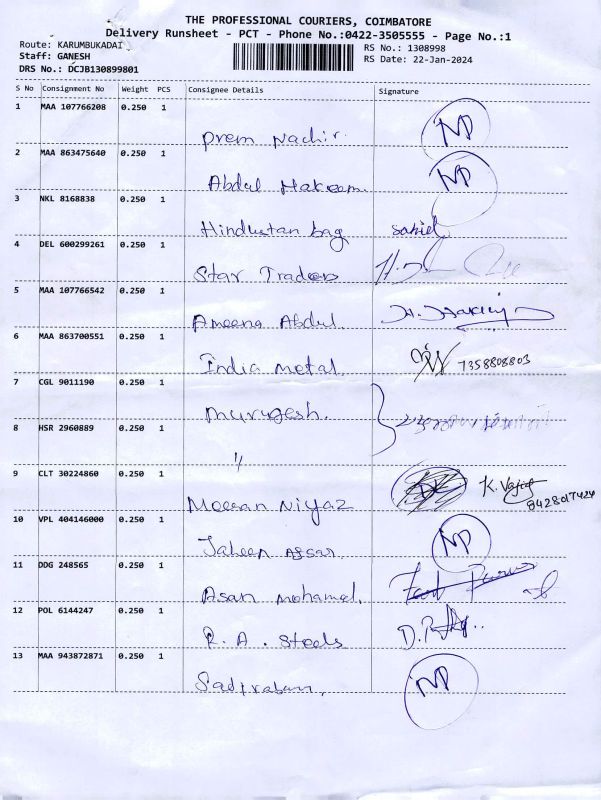 THE PROFESSIONAL COURIERS, COIMBATORE
Delivery Runsheet - PCT - Phone No.:0422-3505555 - Page No.:1
Route: KARUMBUKADAI
RS No.: 1308998
Staff: GANESH
RS Date: 22-Jan-2024
DRS No.: DCJB130899801
S No Consignment No Weight PCS Consignee Details Signature
1 MAA 107766208 0.250 1
Prem Nachir. NP
2 MAA 863475640 0.250 1
Abdul Hakeem NP
3 NKL 8168838 0.250 1
Hindustan bag
4 DEL 600299261 0.250 1
Star Traders
5 MAA 107766542 0.250 1
Ameena Abdul.
6 MAA 863700551 0.250 1
India metal. 7358808803
7 CGL 9011190 0.250 1
Murugesh.
8 HSR 2960889 0.250 1
"
9 CLT 30224860 0.250 1
Meeran Niyaz 8428017424
10 VPL 404146000 0.250 1
Jaheer Afsar. NP
11 DDG 248565 0.250 1
Asan Mohamed.
12 POL 6144247 0.250 1
R. A. Steels
13 MAA 943872871 0.250 1
NP